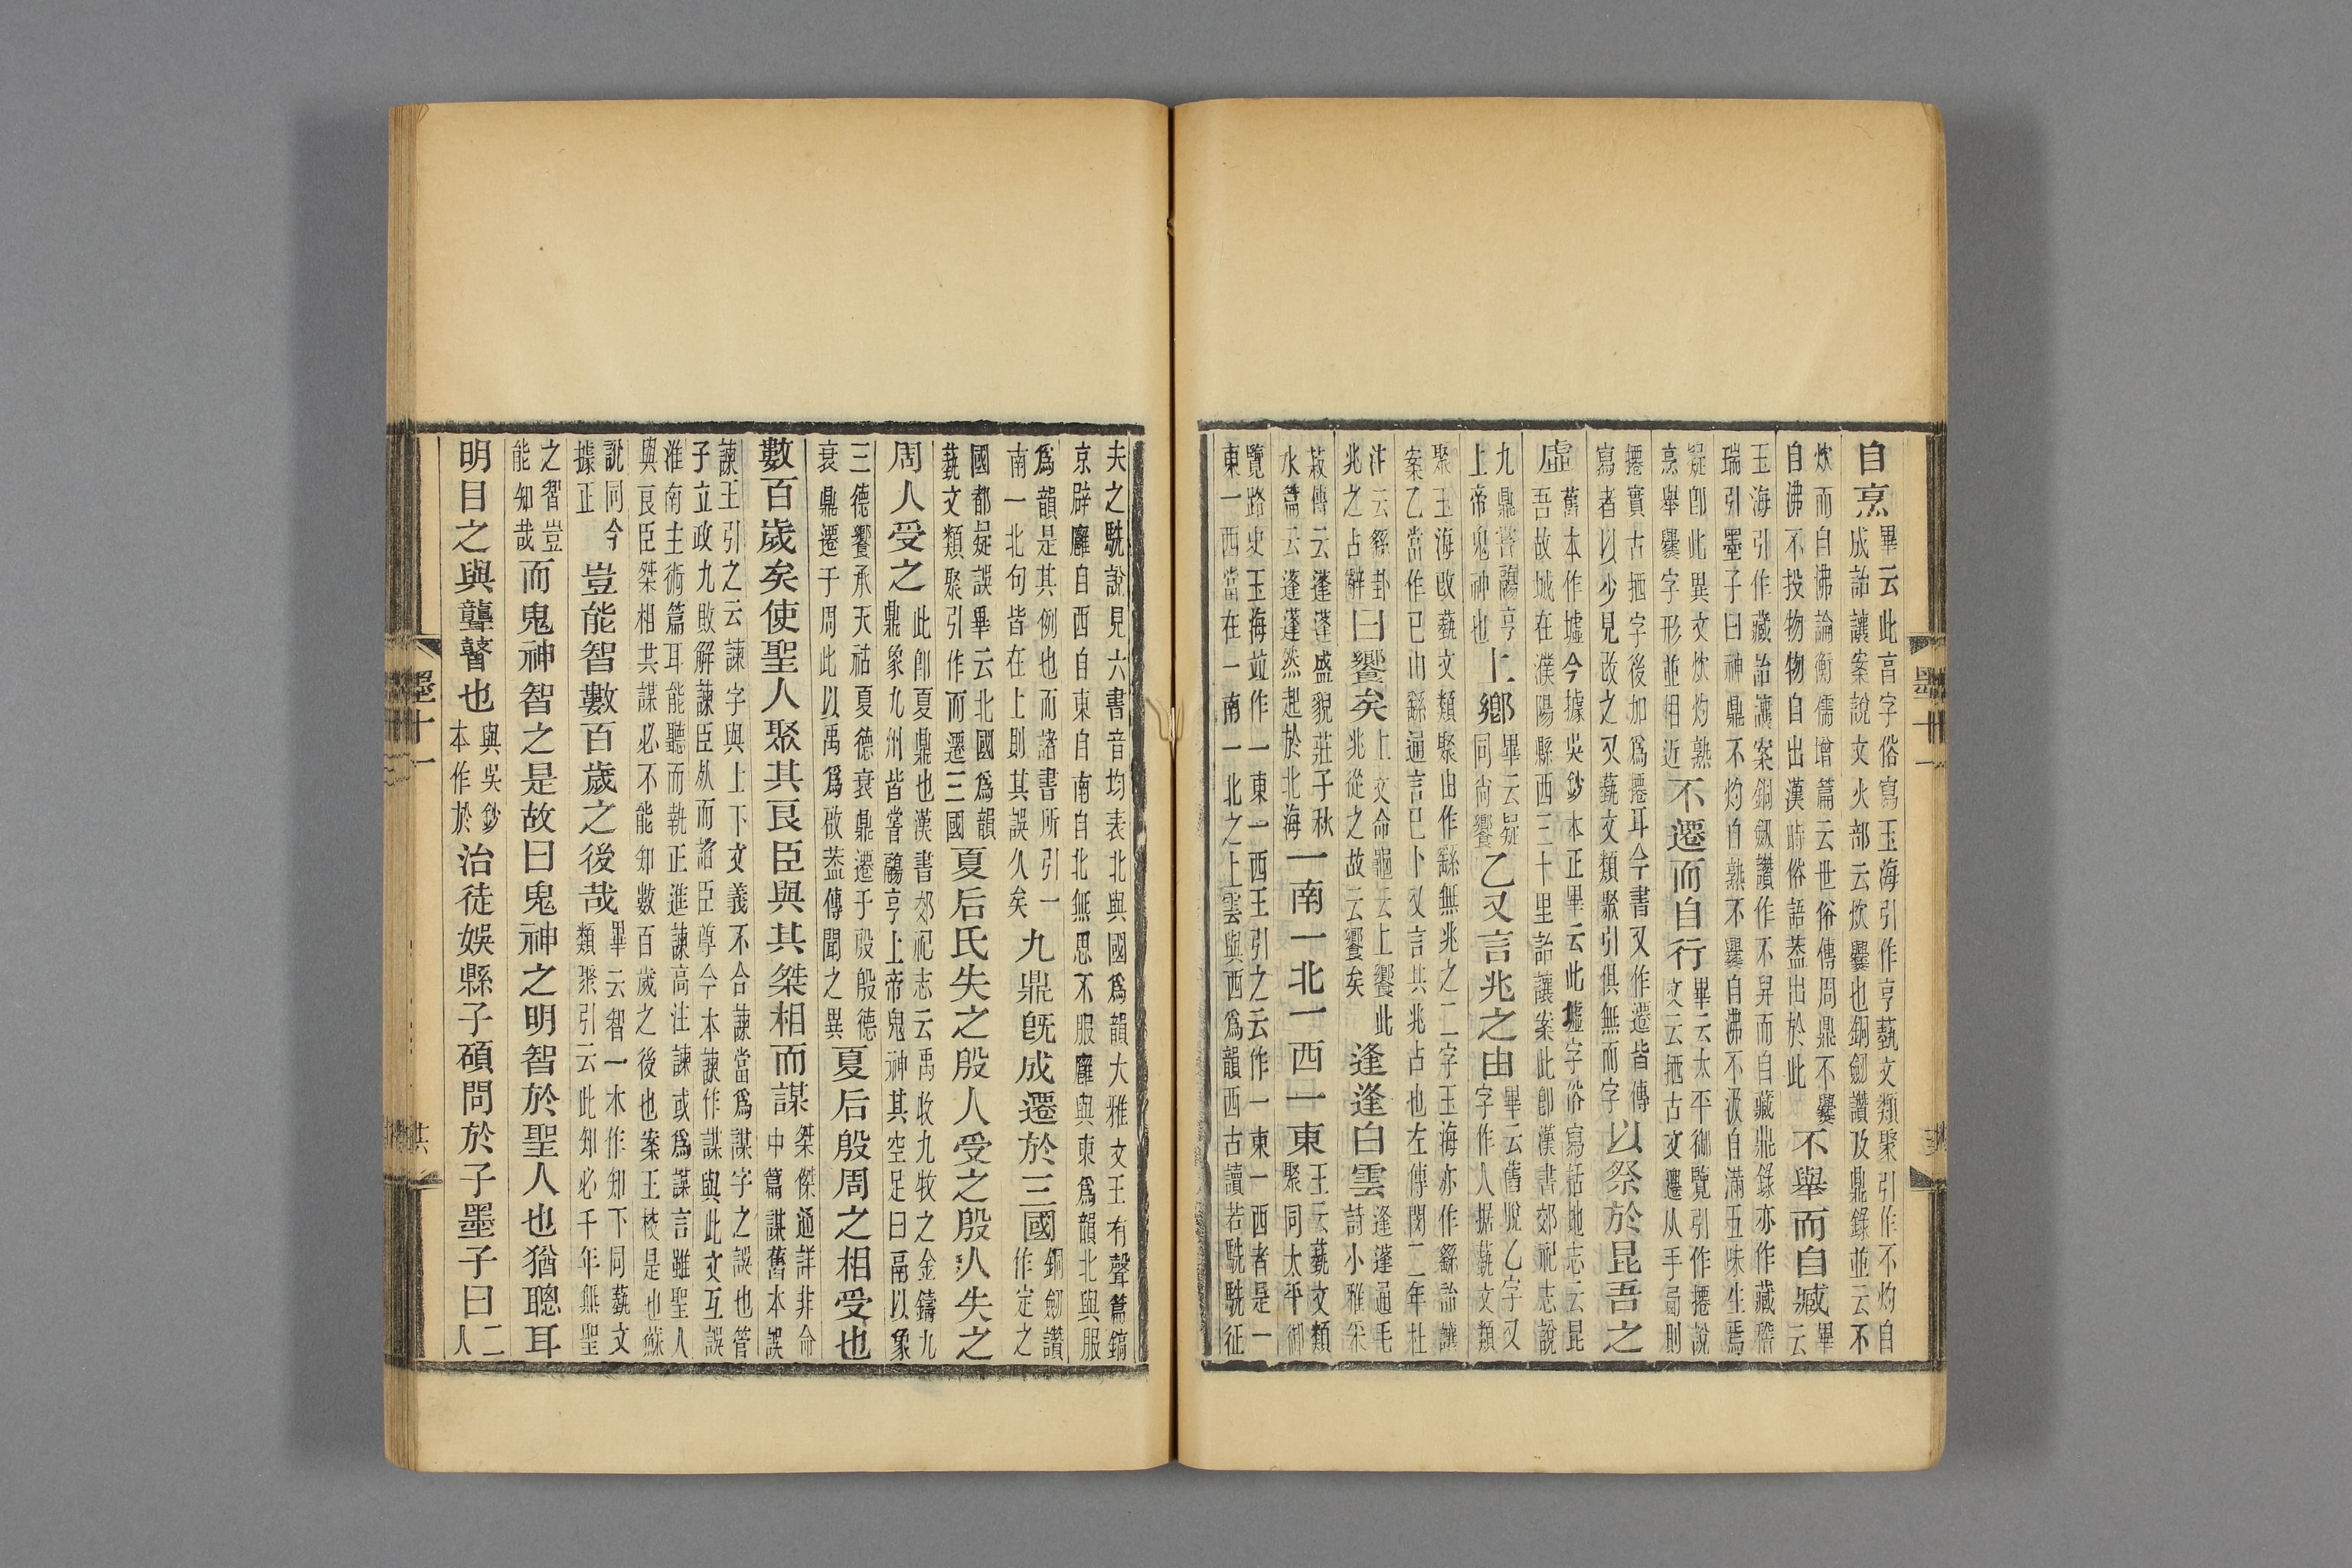 自烹畢云此亯字俗寫玉海引作亨藝文類聚引作不灼自成詒讓案說文火部云炊爨也銅劒讚及鼎錄並云不
炊而自沸論衡儒增篇云世俗傳周鼎不爨自沸不投物物自出漢時俗語葢出於此不舉而自臧畢云
玉海引作藏詒讓案銅劒讚作不舁而自藏鼎錄亦作藏稽瑞引墨子曰神鼎不灼自熟不爨自沸不汲自滿五味生焉
疑卽此異文炊灼熟烹舉爨字形並相近不遷而自行畢云太平御覽引作攓說文云拪古文遷从手㢴則
攓實古拪字後加爲遷耳今書又作遷皆傳寫者以少見改之又藝文類聚引俱無而字以祭於昆吾之
虛舊本作墟今據吳鈔本正畢云此墟字俗寫括地志云昆吾故城在濮陽縣西三十里詒讓案此卽漢書郊祀志說
九鼎嘗鬺亨上帝鬼神也上鄉畢云疑同尚饗乙又言兆之由畢云舊脫乙字又字作人据藝文類
聚玉海改藝文類聚由作繇無兆之二字玉海亦作繇詒讓案乙當作已由繇通言已卜又言其兆占也左傳閔二年杜
注云繇卦兆之占辭曰饗矣上文命龜云上饗此兆從之故云饗矣逢逢白雲逢蓬通毛詩小雅采
菽傳云蓬蓬盛貌莊子秋水篇云蓬蓬然起於北海一南一北一西一東王云藝文類聚同太平御
覽路史玉海竝作一東一西王引之云作一東一西者是一東一西當在一南一北之上雲與西爲韻西古讀若駪駪征
夫之駪說見六書音均表北與國爲韻大雅文王有聲篇鎬京辟廱自西自東自南自北無思不服廱與東爲韻北與服
爲韻是其例也而諸書所引一南一北句皆在上則其誤久矣九鼎旣成遷於三國銅劒讚作定之
國都疑誤畢云北國爲韻藝文類聚引作而遷三國夏后氏失之殷人受之殷人失之
周人受之此卽夏鼎也漢書郊祀志云禹收九牧之金鑄九鼎象九州皆嘗鬺亨上帝鬼神其空足曰鬲以象
三德饗承天祜夏德衰鼎遷于殷殷德衰鼎遷于周此以禹爲啟葢傳聞之異夏后殷周之相受也
數百歲矣使聖人聚其良臣與其桀相而謀桀傑通詳非命中篇謀舊本誤
諫王引之云諫字與上下文義不合諫當爲謀字之誤也管子立政九敗解諫臣死而諂臣尊今本諫作謀與此文互誤
淮南主術篇耳能聽而執正進諫高注諫或爲謀言雖聖人與良臣桀相共謀必不能知數百歲之後也案王校是也蘇
說同今據正豈能智數百歲之後哉畢云智一本作知下同藝文類聚引云此知必千年無聖
之智豈能知哉而鬼神智之是故曰鬼神之明智於聖人也猶聰耳
明目之與聾瞽也與吳鈔本作於治徒娛縣子碩問於子墨子曰二人
墨十一